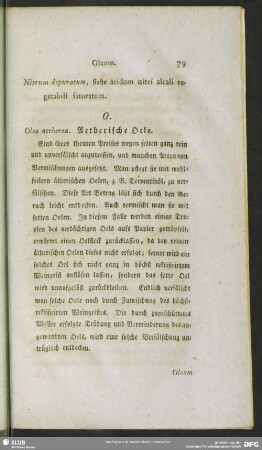 Oleum. 79
Nitrum depuratum, siehe acidum nitri alcali ve-
getabili saturatum.
O.
Olea aetherea. Aetherische Oele.
Sind ihres theuren Preises wegen selten ganz rein
und unverfälscht anzutreffen, und manchen Arten von
Vermischungen ausgesetzt. Man pflegt sie mit wohl-
feilern ätherischen Oelen, z. B. Terpentinöl, zu ver-
fälschen. Diese Art Betrug läßt sich durch den Ge-
ruch leicht entdecken. Auch vermischt man sie mit
fetten Oelen. In diesem Falle werden einige Tro-
pfen des verdächtigen Oels aufs Papier getröpfelt,
erwärmt einen Oelfleck zurücklassen, da bey reinen
ätherischen Oelen dieses nicht erfolgt; ferner wird ein
solches Oel sich nicht ganz in höchst rektifizirtem
Weingeist auflösen lassen, sondern das fette Oel
wird unaufgelöst zurückbleiben. Endlich verfälscht
man solche Oele noch durch Zumischung des höchst-
rektifizirten Weingeistes. Die durch zugeschüttetes
Wasser erfolgte Trübung und Verminderung des an-
gewandten Oels, wird eine solche Verfälschung un-
trüglich entdecken.
Oleum
SLUB
DFG